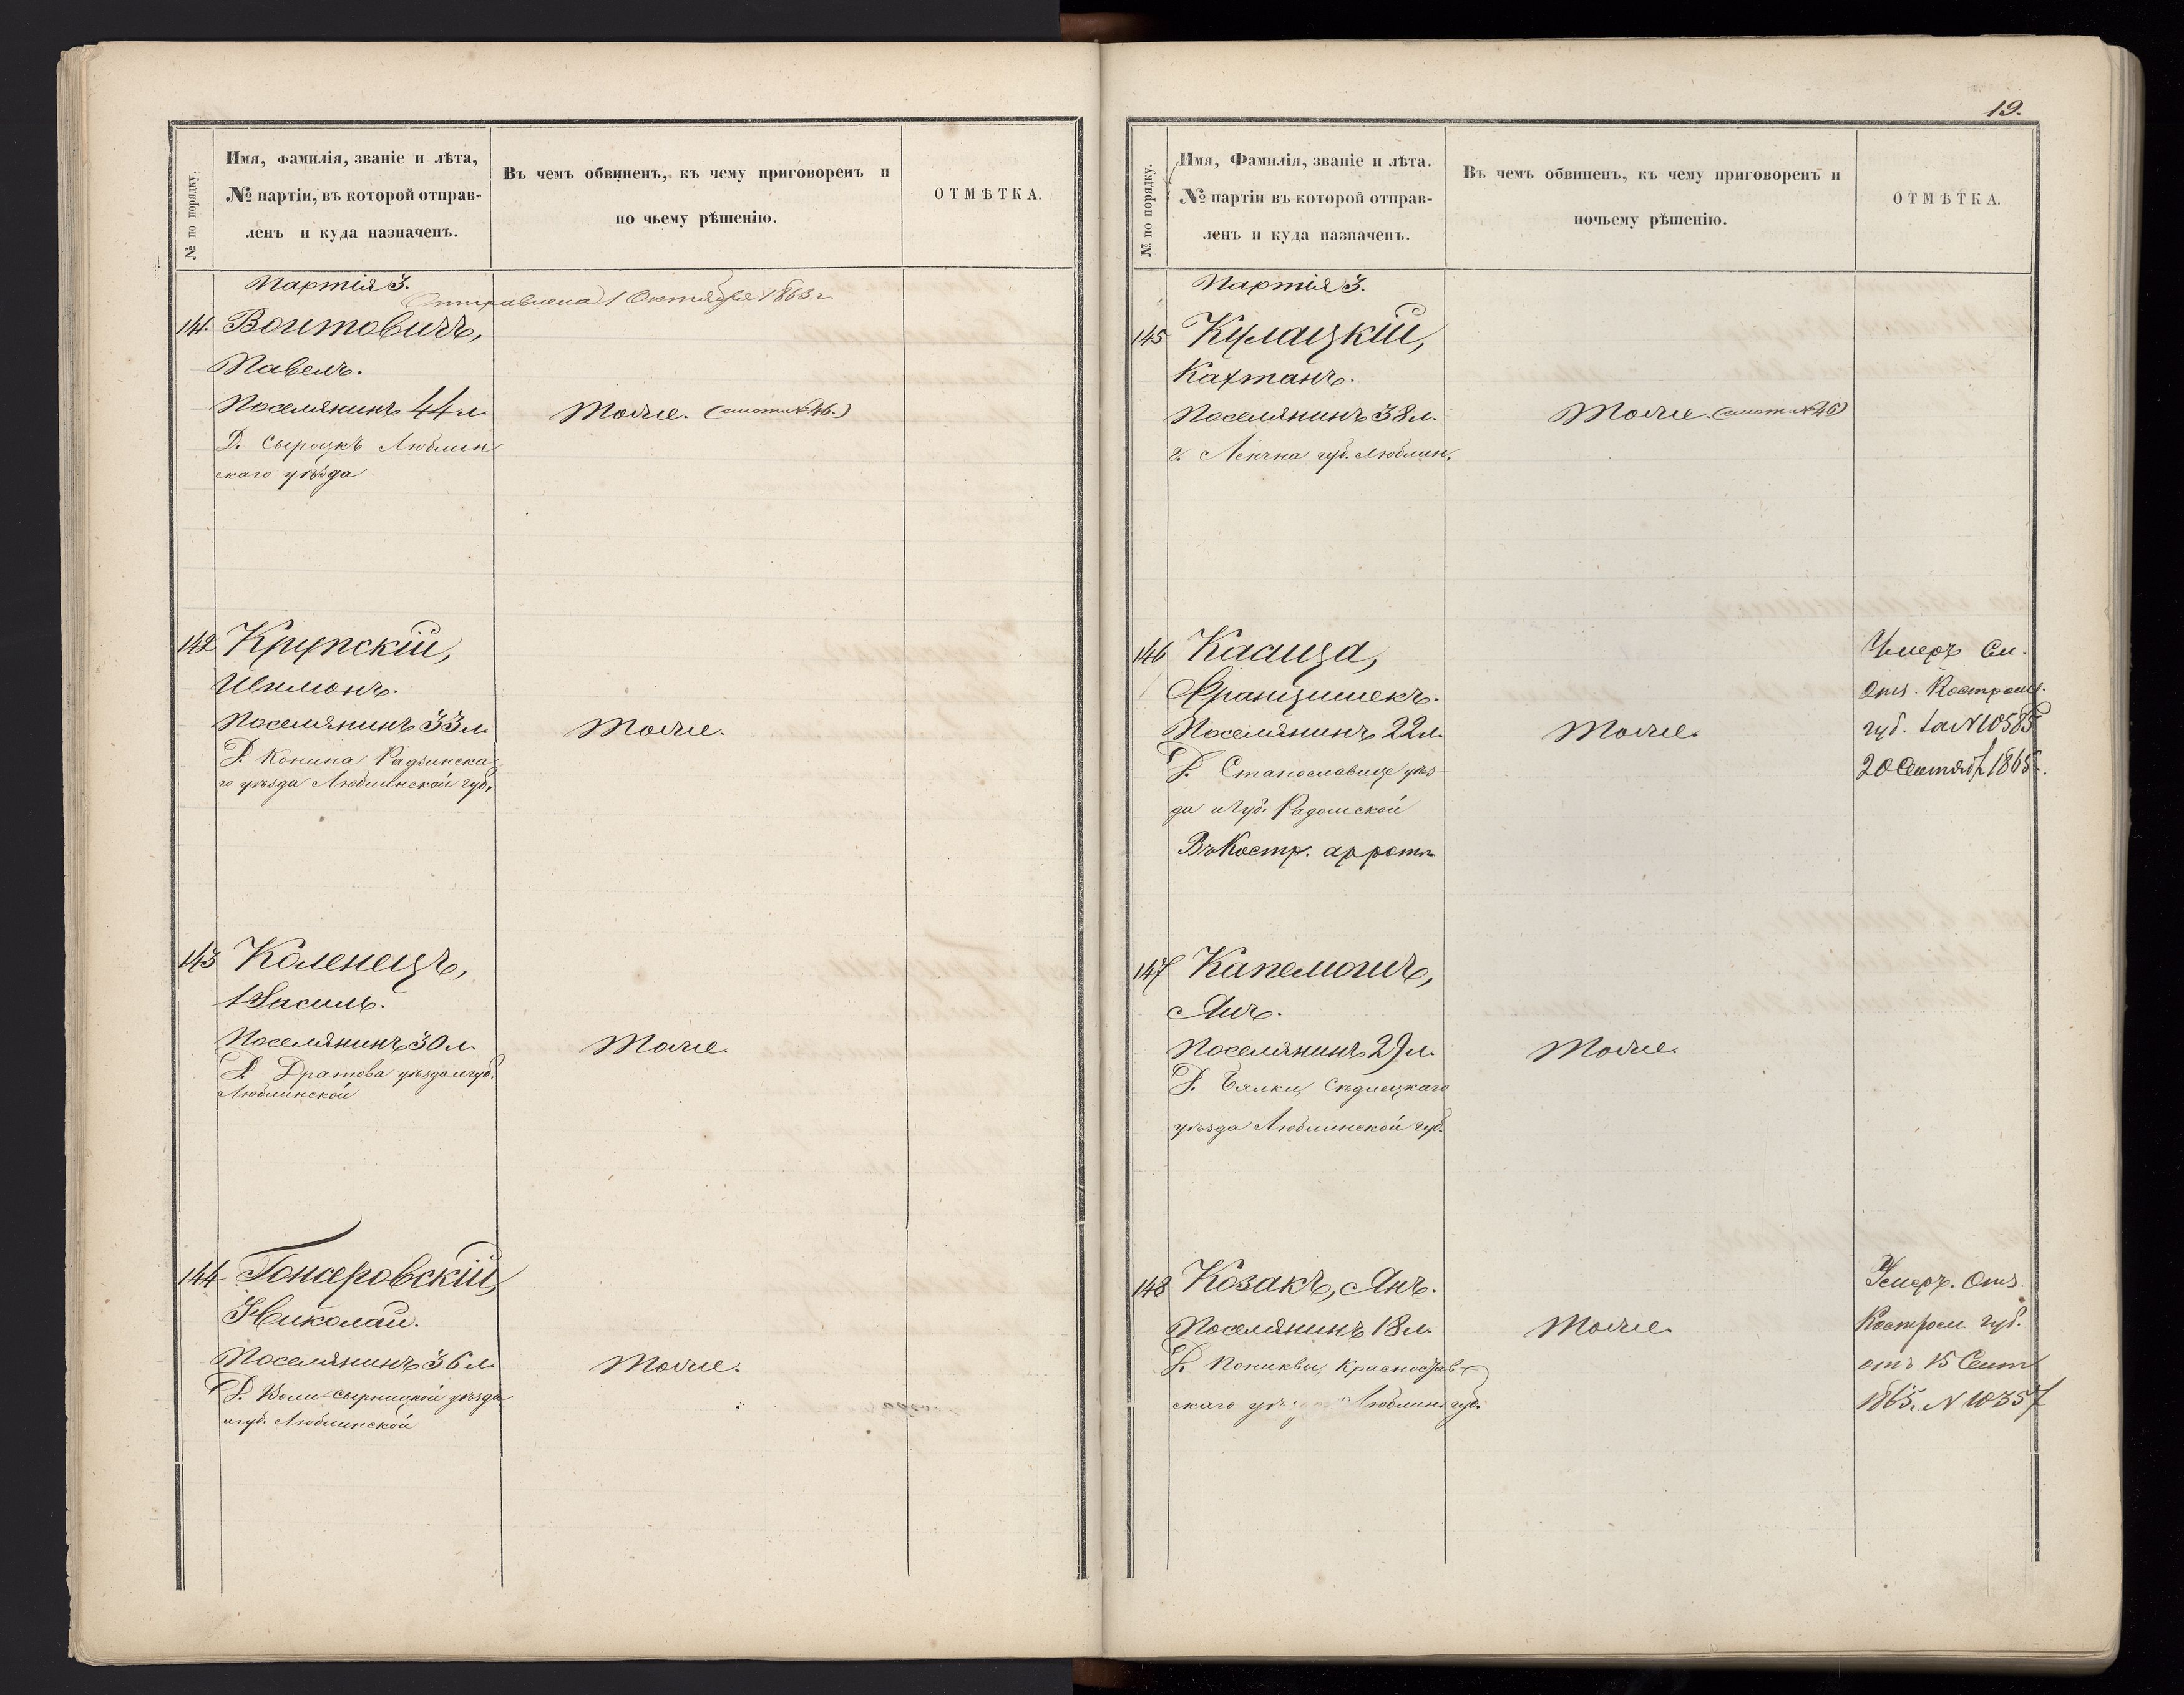 № по порядку.
Имя, фамилія, званіе и лѣта,
№ партіи, въ которой отправ-
ленъ и куда назначенъ.
Въ чемъ обвиненъ, къ чему приговоренъ и
по чьему рѣшенію.
ОТМѢТКА.
Партія 3.
Отправлена 1 Октября 1863 г.
141. Воитовичъ,
Павелъ.
Поселянинъ 44 л.
Тоже. (смот. № 46.)
Д. Сыроцкъ Люблин
скаго уѣзда
142 Крупскій,
Шимонъ.
Поселянинъ 33 л.
Тоже.
Д. Конина Радзинска
го уѣзда Люблинской губ.
143 Коленецъ,
Василь.
Поселянинъ 30 л.
Тоже.
Д. Дратова уѣзда и губ.
Люблинской
144 Гонсеровскій,
Николай.
Поселянинъ 36 л.
Тоже.
Д. Воли-Сырницкой уѣзда
и губ. Люблинской
19.
№ по порядку.
Имя, Фамилія, званіе и лѣта.
№ партіи въ которой отправ-
ленъ и куда назначенъ.
Въ чемъ обвиненъ, къ чему приговоренъ и
почьему рѣшенію.
ОТМѢТКА.
Партія 3.
145 Кулацкій,
Каэтанъ.
Поселянинъ 38 л.
Тоже. (смот. № 46)
г. Ленчна губ. Люблин.
146 Касица,
Францишекъ.
Поселянинъ 22 л.
Тоже.
Д. Станославице уѣз-
да и губ. Радомской
Въ Костр. ар роты
Умеръ См.
Отз. Костром.
губ. за № 10585
20 Сентяб 1865.
147 Капелюшъ,
Янъ.
Поселянинъ 29 л.
Тоже.
Д. Бялки, Сѣдлецкаго
уѣзда Люблинской губ.
148 Козакъ, Янъ.
Поселянинъ 18 л.
Тоже.
Д. Пониквы, Красностав-
скаго Люблин. губ.
Умеръ. Отз.
Костром. губ.
отъ 15 Сент
1865. № 10357